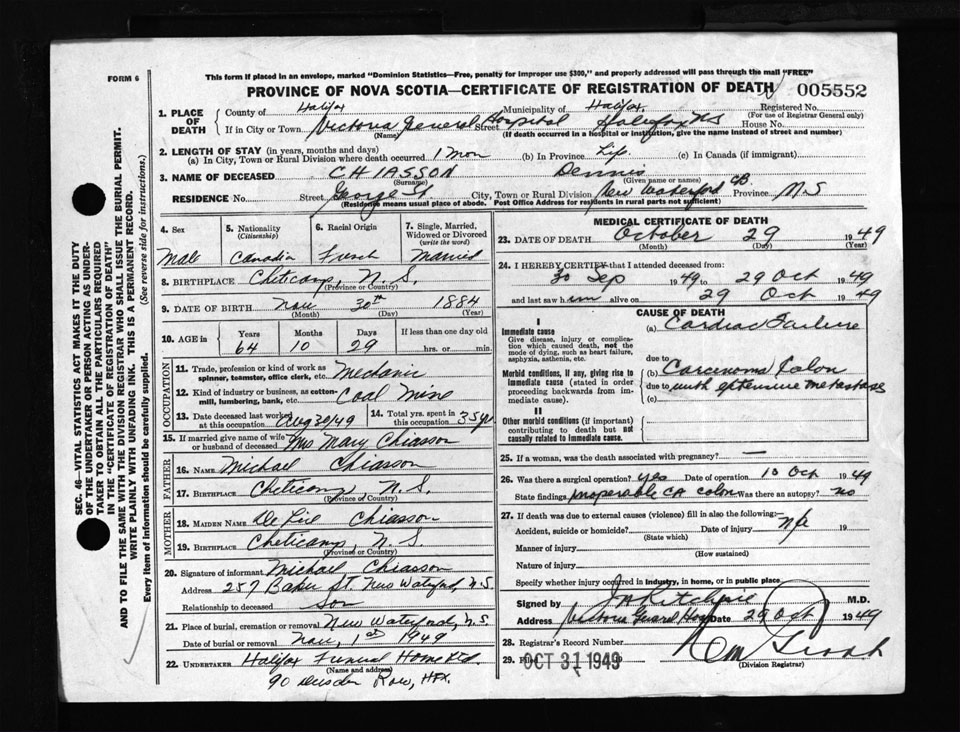 FORM 6
This form if placed in an envelope, marked "Dominion Statistics—Free, penalty for improper use $300," and properly addressed will pass through the mail "FREE"
PROVINCE OF NOVA SCOTIA—CERTIFICATE OF REGISTRATION OF DEATH 005552
1. PLACE OF DEATH County of Halifax Municipality of Halifax Registered No.
(For use of Registrar General only)
If in City or Town Victoria General Hospital Street Halifax NS House No.
(Name) (If death occurred in a hospital or institution, give the name instead of street and number)
2. LENGTH OF STAY (in years, months and days)
(a) In City, Town or Rural Division where death occurred 1 mon (b) In Province Life (c) In Canada (if immigrant)
3. NAME OF DECEASED CHIASSON Dennis
(Surname) (Given name or names)
RESIDENCE No. Street George St. City, Town or Rural Division New Waterford CB Province N.S
(Residence means usual place of abode. Post Office Address for residents in rural parts not sufficient)
4. Sex Male
5. Nationality (Citizenship) Canadian
6. Racial Origin French
7. Single, Married, Widowed or Divorced (write the word) Married
8. BIRTHPLACE Cheticamp, N.S.
(Province or Country)
9. DATE OF BIRTH Nov 30th 1884
(Month) (Day) (Year)
10. AGE in Years Months Days If less than one day old
64 10 29 hrs. or min.
OCCUPATION
11. Trade, profession or kind of work as spinner, teamster, office clerk, etc. Mechanic
12. Kind of industry or business, as cotton-mill, lumbering, bank, etc. Coal Mine
13. Date deceased last worked at this occupation Aug 30/49
14. Total yrs. spent in this occupation 35 yr
15. If married give name of wife or husband of deceased Mrs Mary Chiasson
FATHER
16. NAME Michael Chiasson
17. BIRTHPLACE Cheticamp, N.S.
(Province or Country)
MOTHER
18. MAIDEN NAME Chiasson
19. BIRTHPLACE Cheticamp, N.S.
(Province or Country)
20. Signature of informant Michael Chiasson
Address 257 Baker St. New Waterford, N.S.
Relationship to deceased Son
21. Place of burial, cremation or removal New Waterford, N.S
Date of burial or removal Nov, 1st 1949
22. UNDERTAKER Halifax Funeral Home Ltd.
(Name and address)
90 Row, HFX.
MEDICAL CERTIFICATE OF DEATH
23. DATE OF DEATH October 29 1949
(Month) (Day) (Year)
24. I HEREBY CERTIFY that I attended deceased from:
30 Sep 1949 to 29 Oct 1949
and last saw him alive on 29 Oct 1949
CAUSE OF DEATH
I
Immediate cause
Give disease, injury or complication which caused death, not the mode of dying, such as heart failure, asphyxia, asthenia, etc.
(a) Cardiac Failure
due to
Morbid conditions, if any, giving rise to immediate cause (stated in order proceeding backwards from immediate cause).
(b) Carcinoma Colon
due to with extensive metastases
(c)
II
Other morbid conditions (if important) contributing to death but not causally related to immediate cause.
25. If a woman, was the death associated with pregnancy? —
26. Was there a surgical operation? Yes Date of operation 10 Oct 1949
State findings inoperable CA colon Was there an autopsy? No
27. If death was due to external causes (violence) fill in also the following:—
Accident, suicide or homicide? Date of injury n/a 19
(State which)
Manner of injury
(How sustained)
Nature of injury
Specify whether injury occurred in industry, in home, or in public place
Signed by Ritchie M.D.
Address Victoria General Hosp Date 29 Oct 1949
28. Registrar's Record Number
29. Filed OCT 31 1949
(Division Registrar)
SEC. 46—VITAL STATISTICS ACT MAKES IT THE DUTY
OF THE UNDERTAKER OR PERSON ACTING AS UNDER-
TAKER TO OBTAIN ALL THE PARTICULARS REQUIRED
IN THE "CERTIFICATE OF REGISTRATION OF DEATH"
AND TO FILE THE SAME WITH THE DIVISION REGISTRAR WHO SHALL ISSUE THE BURIAL PERMIT.
WRITE PLAINLY WITH UNFADING INK. THIS IS A PERMANENT RECORD.
Every item of information should be carefully supplied. (See reverse side for instructions.)